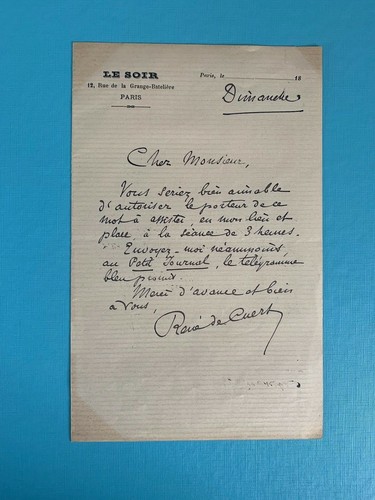 LE SOIR
12, Rue de la Grange-Batelière
PARIS
Paris, le 18
Dimanche
Cher Monsieur,
Vous seriez bien aimable
d'autoriser le porteur de ce
mot à assister, en mon lieu et
place, à la séance de 3 heures.
Envoyez-moi néanmoins,
au Petit Journal, le télégramme
bleu promis.
Merci d'avance et bien
à vous,
René de Cuers